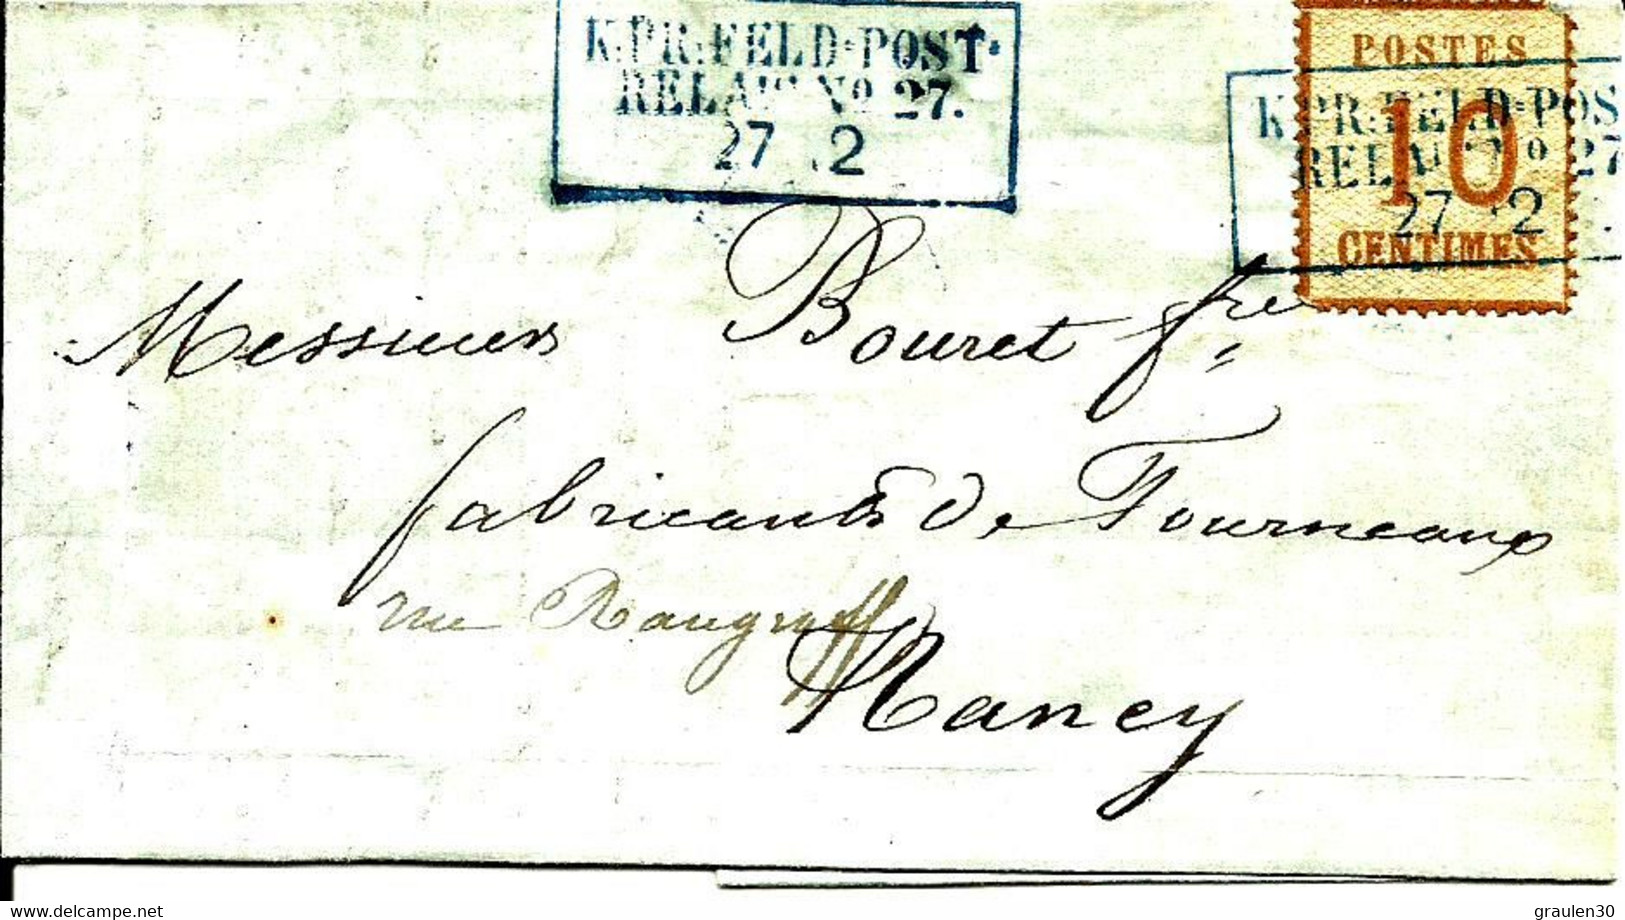 K:PR:FELD=POST=
RELAIS No 27.
27 2
POSTES
10
CENTIMES
K:PR:FELD=POS
RELAIS No 27
27 2
Messieurs Bouret fres
fabricants de Fourneaux
rue Raugraff
Nancy
delcampe.net
graulen30